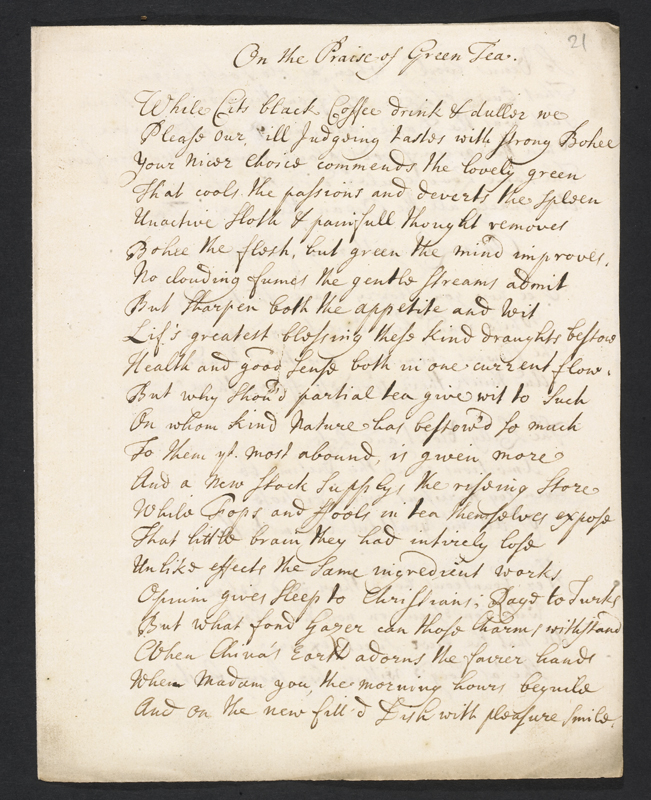 21
On the Praise of Green Tea.
While Cits black Coffee drink & duller we
Please our ill Judgeing tastes with strong Bohee
Your nicer choice commends the lovely green
That cools the passions and deverts the Spleen
Unactive Sloth & painfull thought removes
Bohee the flesh, but green the mind improves.
No clouding fumes the gentle streams admit
But sharpen both the appetite and Wit
Life's greatest blessing these kind draughts bestow
Health and good Sense both in one current flow.
But why shou'd partial tea give wit to Such
On whom kind Nature has bestow'd so much
To them yt. most abound, is given more
And a new Stock Supplys the riseing Store
While Fops and Fools in tea themselves expose
That little brain they had intirely lose
Unlike effects the same ingredient works
Opium gives sleep to Christians; Rage to Turks
But what fond Gazer can those Charms withstand
When China's Earth adorns the fairer hands
When Madam you, the morning hours beguile
And on the new fill'd Dish with pleasure Smile.